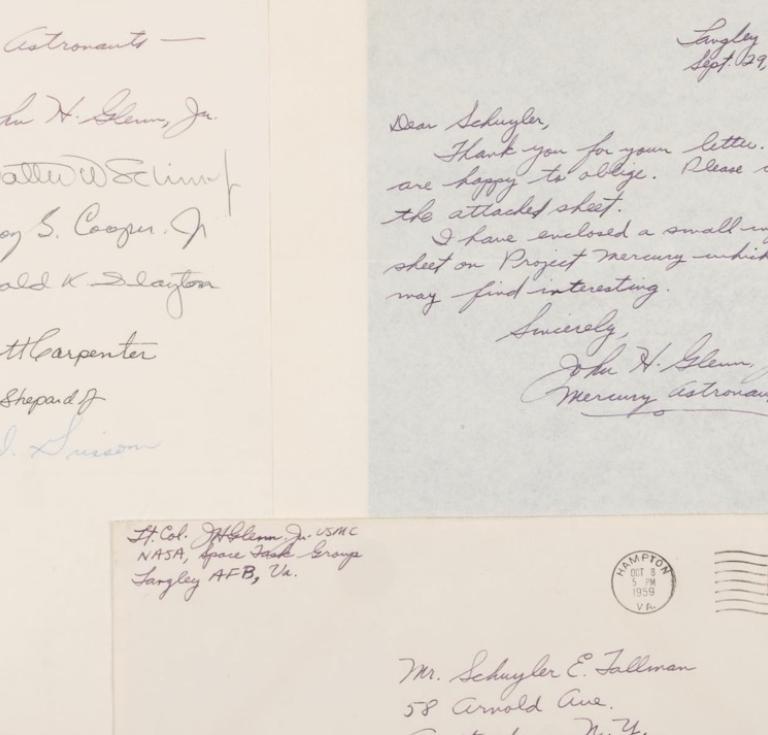 Astronauts —
John H. Glenn, Jr.
Walter M Schirra Jr
S. Cooper. Jr
ald K Slayton
tt Carpenter
Shepard Jr
I. Grissom
Langley
Sept. 29,
Dear Schuyler,
Thank you for your letter.
are happy to oblige. Please
the attached sheet.
I have enclosed a small
sheet on Project Mercury which
may find interesting.
Sincerely,
John H. Glenn,
Mercury Astronau
Lt. Col. JHGlenn Jr. USMC
NASA, Space Task Group
Langley AFB, Va.
HAMPTON
OCT 3
5 PM
1959
VA.
Mr. Schuyler E. Tallman
58 Arnold Ave.
N.Y.